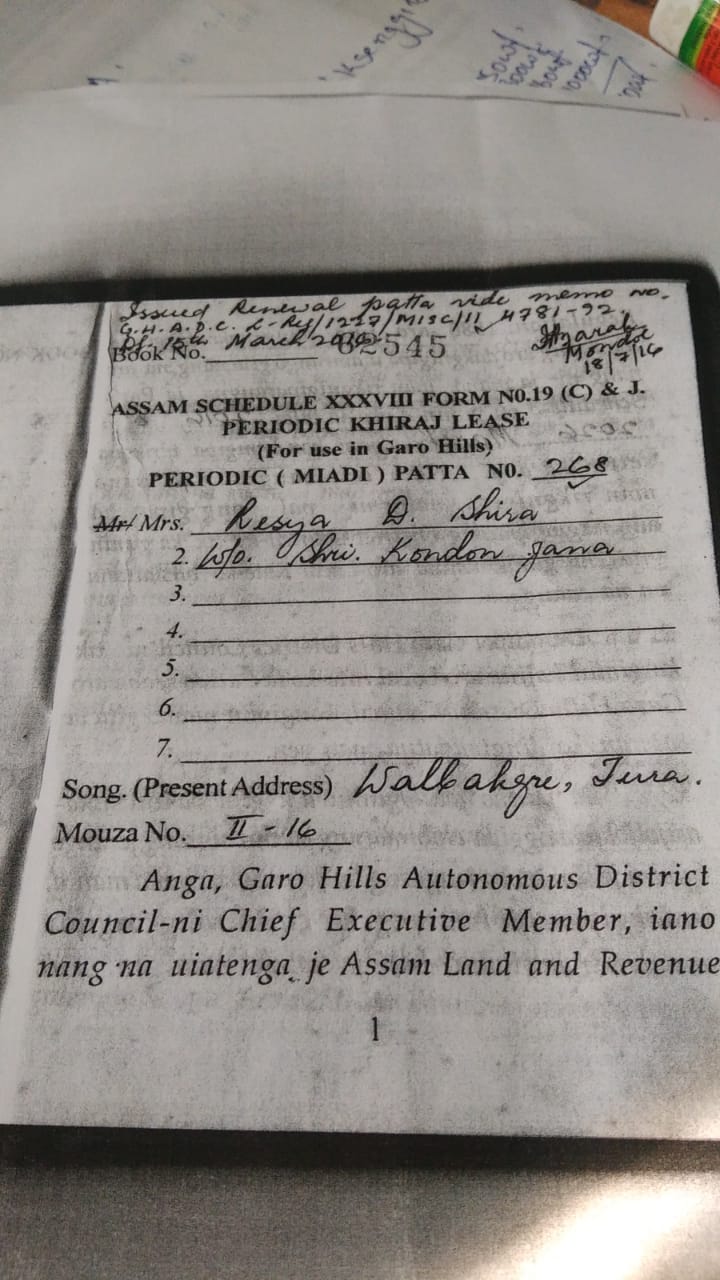 Issued Renewal patta vide memo No.
G.H.A.D.C. L-Ry/1217/MISC/11 4781-92
Dt. 15th March
Book No. 62545
18/7/16
ASSAM SCHEDULE XXXVIII FORM N0.19 (C) & J.
PERIODIC KHIRAJ LEASE
(For use in Garo Hills)
PERIODIC ( MIADI ) PATTA N0. 268
Mr/ Mrs. Resya D. Shira
2. W/o. Shri. Kondon Jana
3.
4.
5.
6.
7.
Song. (Present Address) Walbakgre, Tura.
Mouza No. II - 16
Anga, Garo Hills Autonomous District
Council-ni Chief Executive Member, iano
nang·na uiatenga je Assam Land and Revenue
1